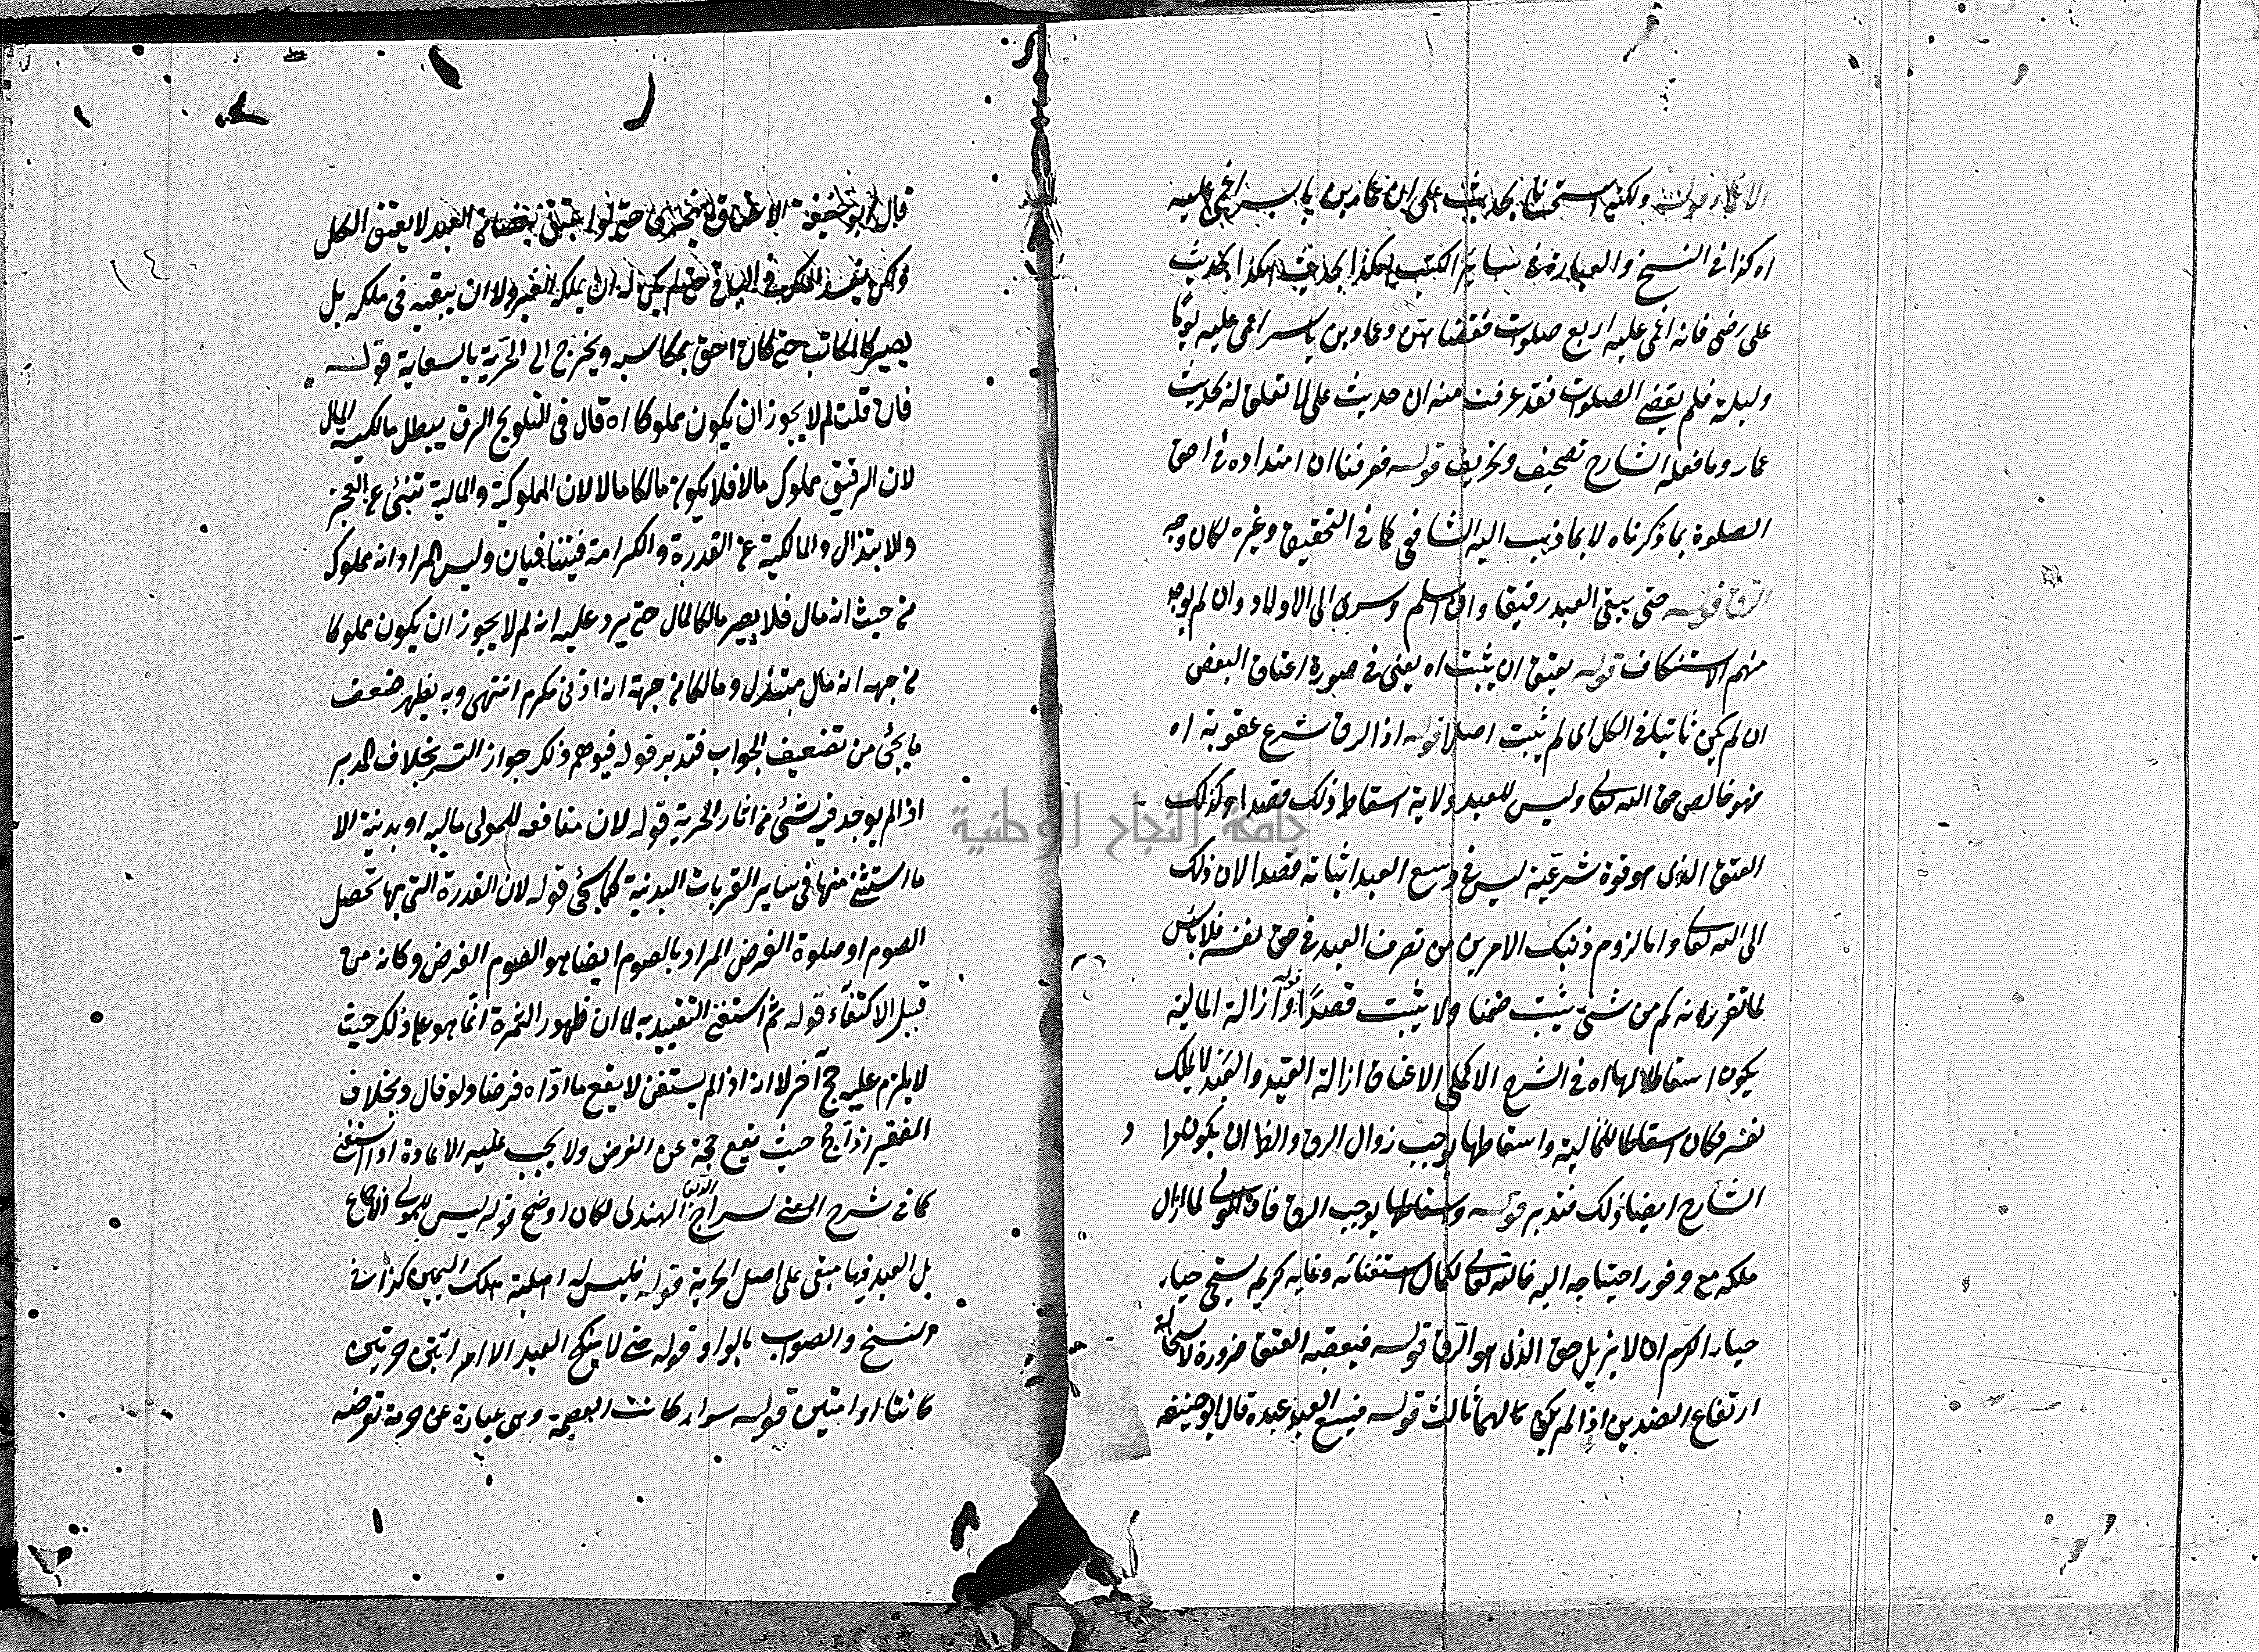 الاغماء قوله ولكنا استحسنا بحديث على ان عمار بن ياسر اغمى عليه
اه كذا فى النسخ والعبارة فى سائر الكتب هكذا بحديث هكذا بحديث
على رضى فانه اغمى عليه اربع صلوات فقضاهن وعمار بن ياسر اغمى عليه يوما
وليلة فلم يقض الصلوات فقد عرفت منه ان حديث على لا تعلق له بحديث
عمار وما فعله الشارح تصحيف وتحريف قوله فعرفنا ان امتداده فى حق
الصلوة بما ذكرناه لا بما ذهب اليه الشافعى كما فى التحقيق وغيره لكان وجه
الرق قوله حتى يبقى العبد رقيقا وان اسلم وسرى الى الاولاد وان لم يوجد
منهم الاستنكاف قوله يعتق ان يثبت اه يعنى فى صورة اعتاق البعض
ان لم يكن ثابتا فى الكل اى لم يثبت اصلا قوله اذ الرق شرع عقوبة اه
فهو خالص حق الله تعالى وليس للعبد ولاية اسقاط ذلك قصدا وكذلك
العتق الذى هو قوة شرعية ليس فى وسع العبد اثباته قصدا لان ذلك
الى الله تعالى واما لزوم ذينك الامرين من تصرف العبد فى حق نفسه فلا بأس
لما تقرر انه كم من شئ يثبت ضمنا ولا يثبت قصدًا قوله وازالة المالية
يكون اسقاطا لها اه فى الشرح الاكملى الاعتاق ازالة القيد والعبد لا يملك
نفسه فكان اسقاطا للمالية واسقاطها يوجب زوال الرق والظ ان يكون مراد
الشارح ايضا ذلك فتدبر قوله واسقاطها يوجب الرق فان المولى لما ازال
ملكه مع وفور احتياجه اليه فالله تعالى لكمال استغنائه وغاية كرمه يستحى حياء
حياء الكرم ان لا يزيل حق الذى هو الرق قوله فيعقبه العتق ضرورة لاستحالة
ارتفاع الضدين اذا لم يكن لهما ثالث قوله فيسع العبد عبده قال ابو حنيفة
قال ابو حنيفة الاعتاق متجزى حتى لو اعتق بعضا من العبد لا يعتق الكل
ولكن يفسد الملك فى الباقى حتى لم يكن له ان يملك الغير ولا ان يبقيه فى ملكه بل
يصير كالمكاتب حتى كان احق بمكاسبه ويخرج الى الحرية بالسعاية قوله
فان قلت لم لا يجوز ان يكون مملوكا اه قال فى التلويح الرق يبطل مالكية المال
لان الرقيق مملوك مالا فلا يكون مالكا مالا لان المملوكية والمالية تنبئ عن العجز
والابتذال والمالكية عن القدرة والكرامة فيتنافيان وليس المراد انه مملوك
من حيث انه مال فلا يصير مالكا لمال حتى يرد عليه انه لم لا يجوز ان يكون مملوكا
من جهة انه مال مبتذل ومالكا من جهة انه ادمى مكرم انتهى وبه يظهر ضعف
ما يجئ من تضعيف الجواب فتدبر قوله فيوهم ذلك جواز التسرى بخلاف المدبر
اذ لم يوجد فيه شئ من اثار الحرية قوله لان منافعه للمولى مالية او بدنية الا
ما استثنى منها فى ساير القربات البدنية كما يجئ قوله لان القدرة التى بها تحصل
الصوم او صلوة الفرض المراد بالصوم ايضا هو الصوم الفرض وكانه من
قبيل الاكتفاء قوله ثم استغنى التقييد به لما ان ظهور الثمرة انما هو على ذلك حيث
لا يلزم عليه حج آخر لا انه اذا لم يستغن لا يقع ما ادّاه فرضا ولو قال وبخلاف
الفقير اذا حج حيث يقع حجة عن الفرض ولا يجب عليه الاعادة اذا استغنى
كما فى شرح المغنى لسراج الدين الهندى لكان اوضح قوله ليس للمولى اه اجماع
بل العبد فيها مبقى على اصل الحرية قوله فليس له اهلية ملك اليمين كذا فى
النسخ والصواب بالواو قوله حتى لا ينكح العبد الا امراتين حرتين
كانتا او امتين قوله سواء كانت العصمة وهى عبارة عن حرمة تعرضه